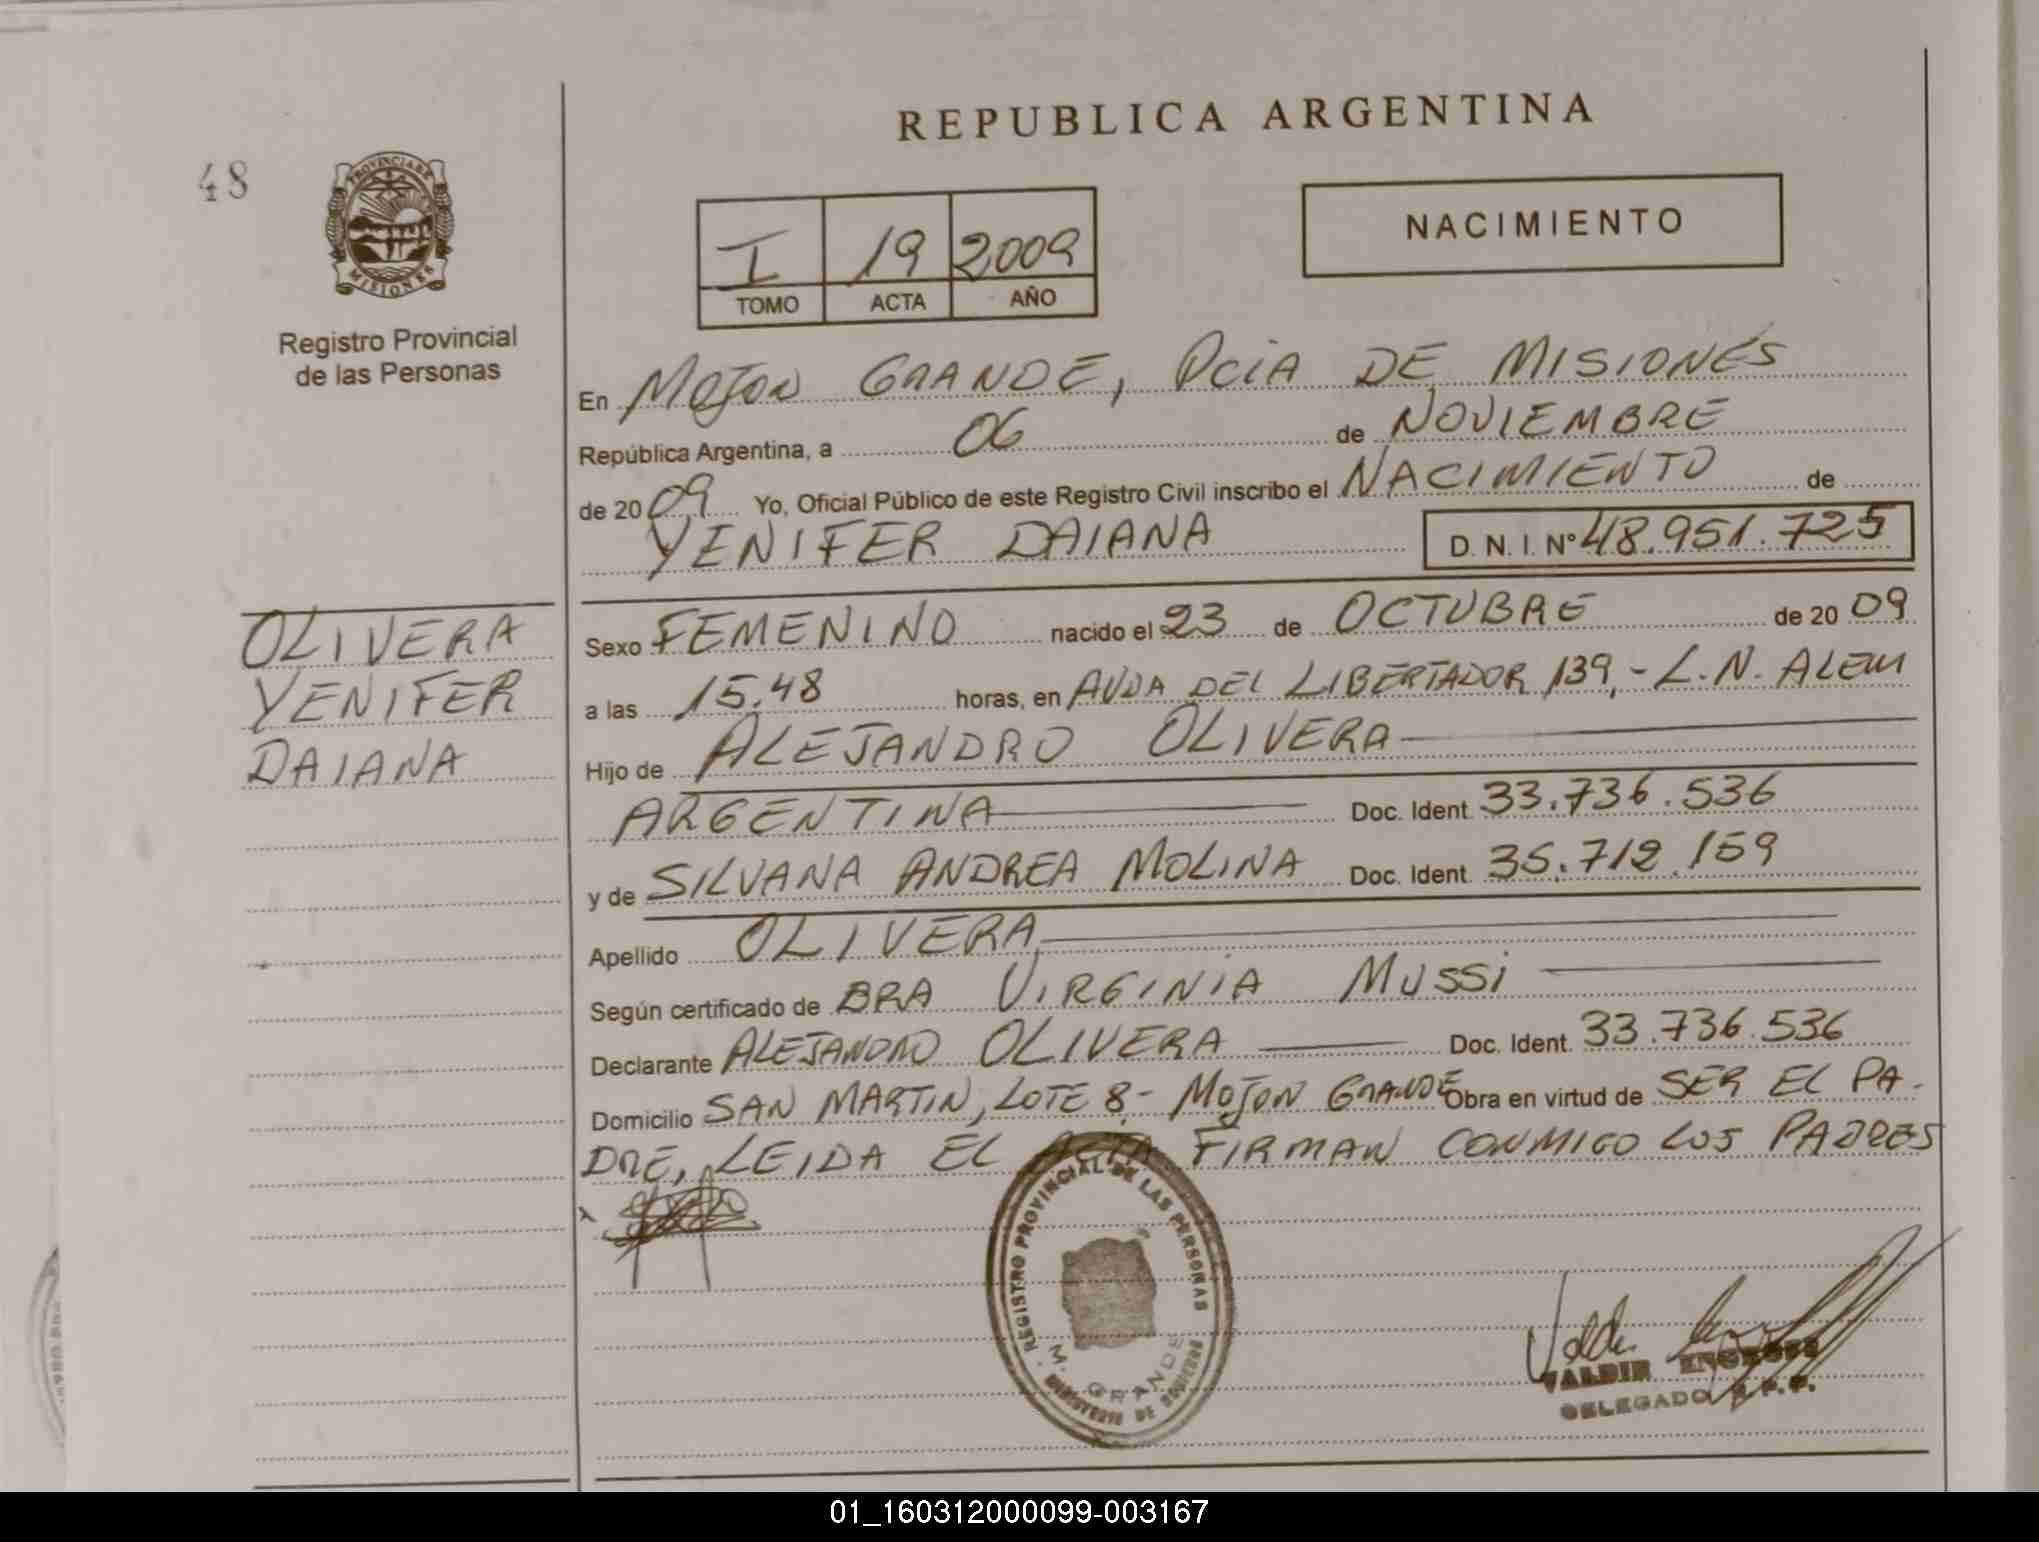 48
PROVINCIA DE
MISIONES
Registro Provincial
de las Personas
OLIVERA
YENIFER
DAIANA
REPUBLICA ARGENTINA
I 19 2009
TOMO ACTA AÑO
NACIMIENTO
En MOJON GRANDE, PCIA DE MISIONES
República Argentina, a 06 de NOVIEMBRE
de 2009 Yo, Oficial Público de este Registro Civil inscribo el NACIMIENTO de
YENIFER DAIANA D. N. I. Nº 48.951.725
Sexo FEMENINO nacido el 23 de OCTUBRE de 2009
a las 15.48 horas, en AVDA DEL LIBERTADOR 139,- L.N. ALEM
Hijo de ALEJANDRO OLIVERA
ARGENTINA Doc. Ident. 33.736.536
y de SILVANA ANDREA MOLINA Doc. Ident. 35.712.159
Apellido OLIVERA
Según certificado de DRA VIRGINIA MUSSI
Declarante ALEJANDRO OLIVERA Doc. Ident. 33.736.536
Domicilio SAN MARTIN, LOTE 8- MOJON GRANDE Obra en virtud de SER EL PA-
DRE, LEIDA EL ACTA FIRMAN CONMIGO LOS PADRES
REGISTRO PROVINCIAL DE LAS PERSONAS
M. GRANDE
MINISTERIO DE GOBIERNO
VALDIR
DELEGADO R.P.P.
01_160312000099-003167